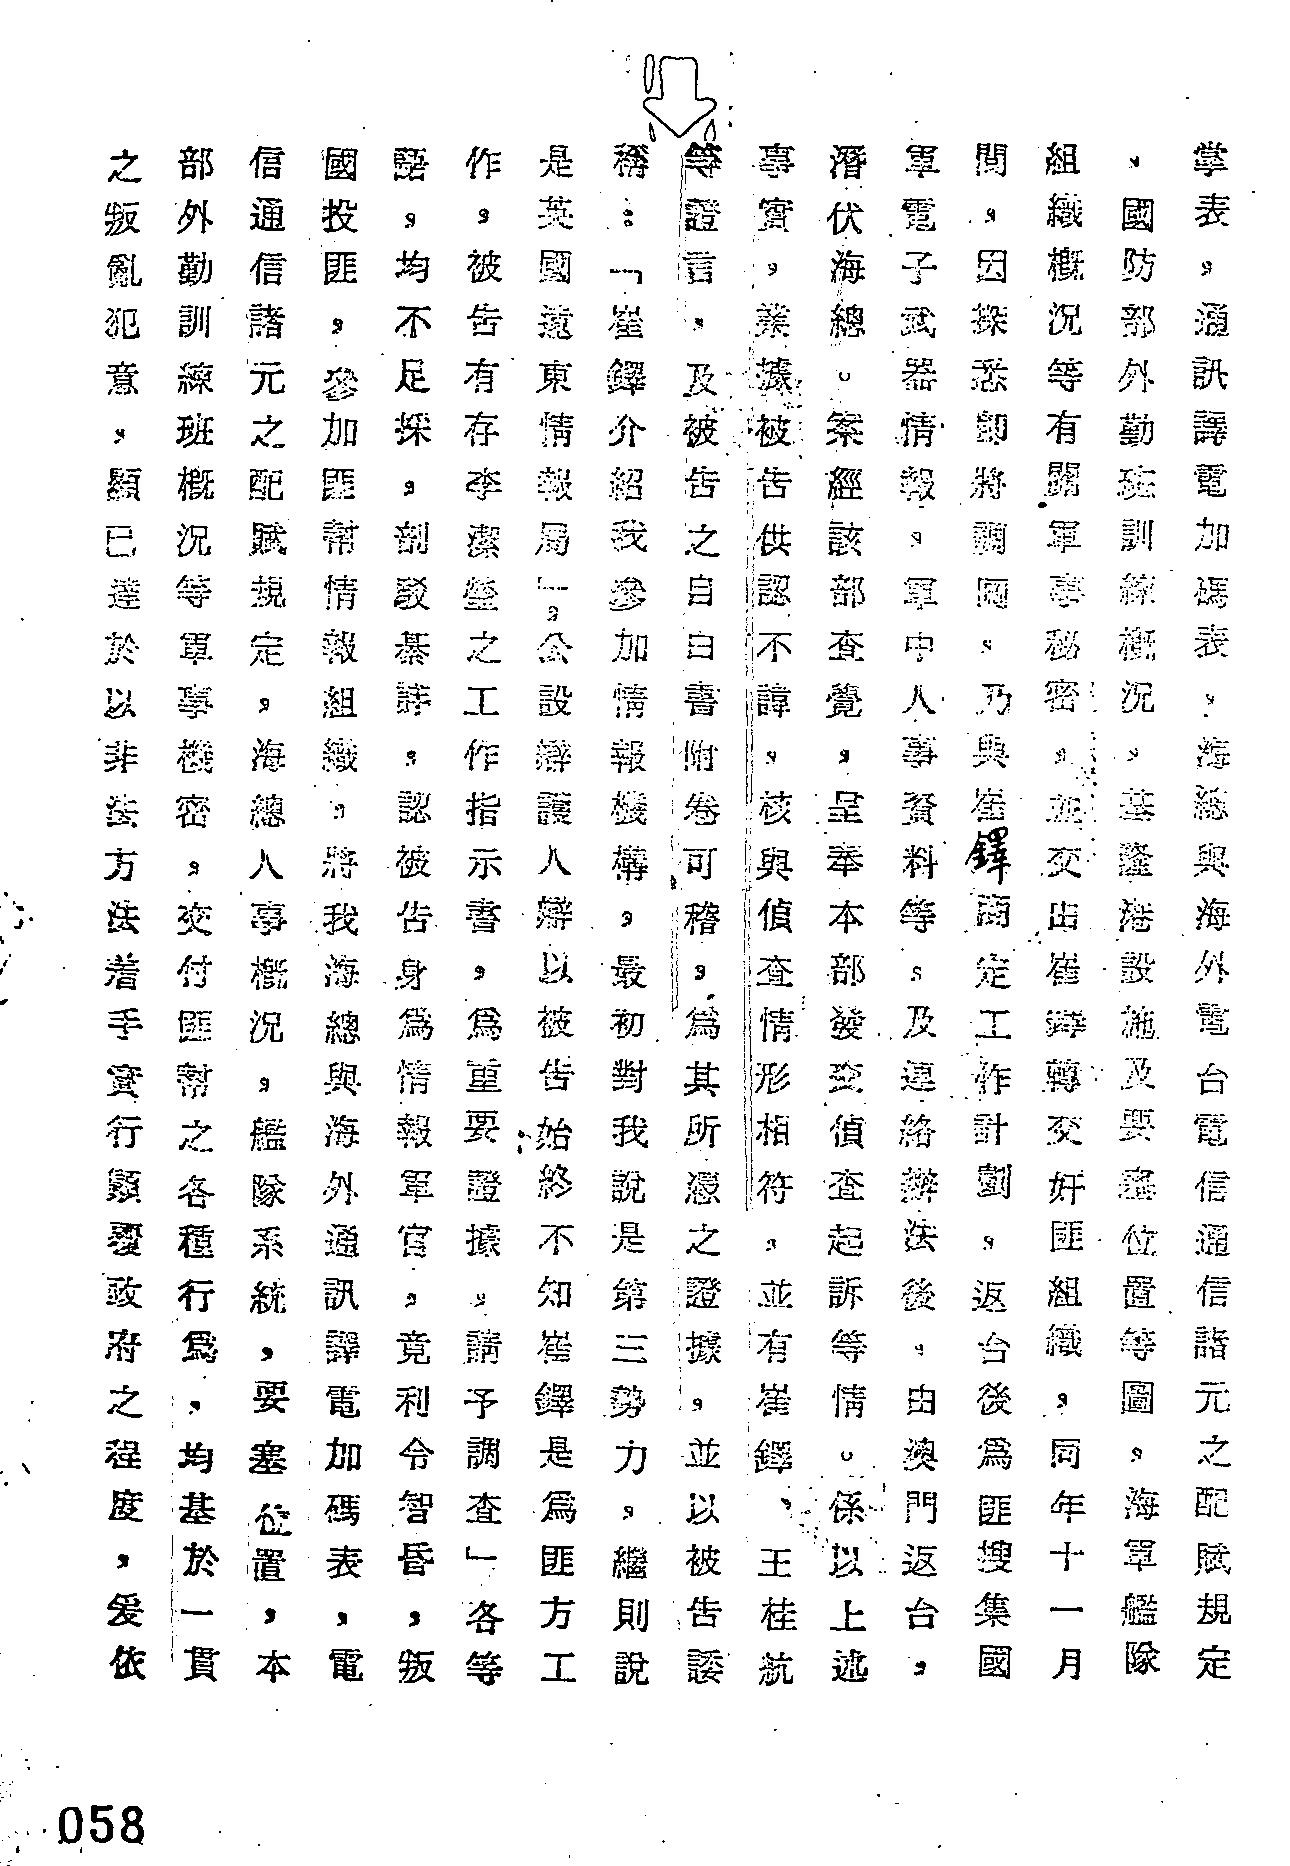 掌表，通訊譯電加碼表，海總與海外電台電信通信諸元之配賦規定
，國防部外勤班訓練概況，基隆港設施及要塞位置等圖，海軍艦隊
組織概況等有關軍事秘密，並交出崔鐸轉交奸匪組織，同年十一月
間，因探悉即將調國，乃與崔鐸商定工作計劃，返台後為匪搜集國
軍電子武器情報，軍中人事資料等，及連絡辦法後，由澳門返台，
潛伏海總。案經該部查覺，呈奉本部發交偵查起訴等情。係以上述
事實，業據被告供認不諱，核與偵查情形相符，並有崔鐸、王桂航
等證言，及被告之自白書附卷可稽，為其所憑之證據，並以被告諉
稱：「崔鐸介紹我參加情報機構，最初對我說是第三勢力，繼則說
是英國遠東情報局」，公設辯護人辯以被告始終不知崔鐸是為匪方工
作，被告有存李潔瑩之工作指示書，為重要證據，請予調查」各等
語，均不足採，剖駁綦詳，認被告身為情報軍官，竟利令智昏，叛
國投匪，參加匪幫情報組織，將我海總與海外通訊譯電加碼表，電
信通信諸元之配賦規定，海總人事概況，艦隊系統，要塞位置，本
部外勤訓練班概況等軍事機密，交付匪幫之各種行為，均基於一貫
之叛亂犯意，顯已達於以非法方法着手實行顛覆政府之程度，爰依
058